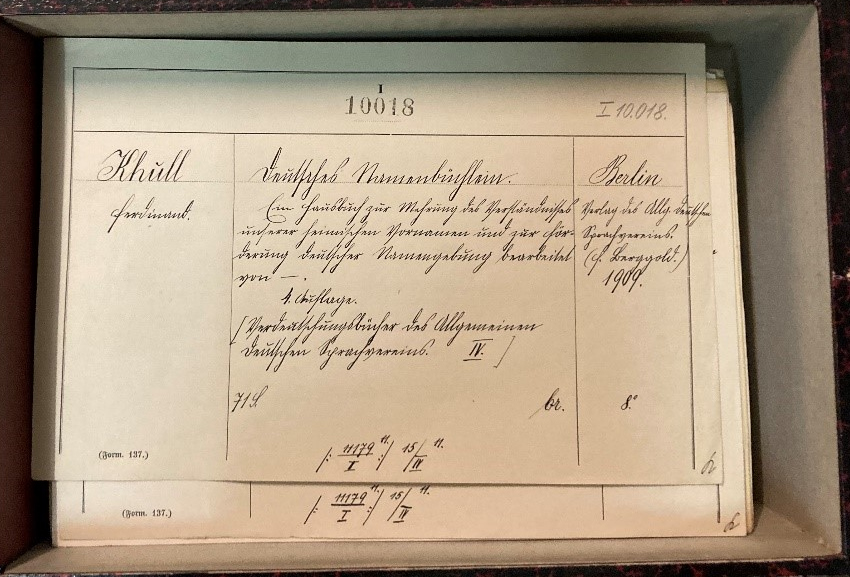 I
10018
I 10.018.
Khull
Ferdinand.
Deutsches Namenbüchlein.
Ein Hausbuch zur Mehrung des Verständnisses
unserer heimischen Vornamen und zur För-
derung deutscher Namengebung bearbeitet
von — .
4. Auflage.
[Verdeutschungsbücher des Allgemeinen
Deutschen Sprachvereins. IV.]
Berlin
Verlag des Allg. Deutschen
Sprachvereins.
(F. Berggold.)
1909.
71 S.
br.
8°
/: 11179 11. :/ 15/ 11.
I IV
(Form. 137.)
/: 11179 11. :/ 15/ 11.
I IV
(Form. 137.)